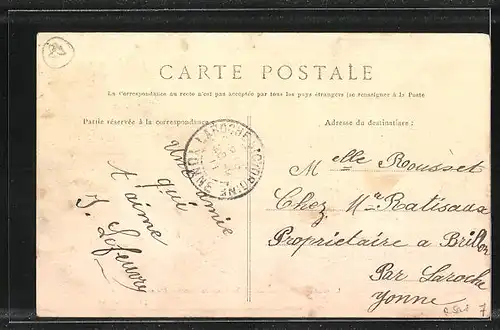 CARTE POSTALE
La Correspondance au recto n'est pas acceptée par tous les pays étrangers (se renseigner à la Poste
Partie réservée à la correspondance
Adresse du destinataire :
Une amie
qui
t'aime
J. Lefeuvry
LAROCHE YONNE
Melle Rousset
Chez Mr Ratisaux
Propriétaire a Brillon
Par Laroche
Yonne